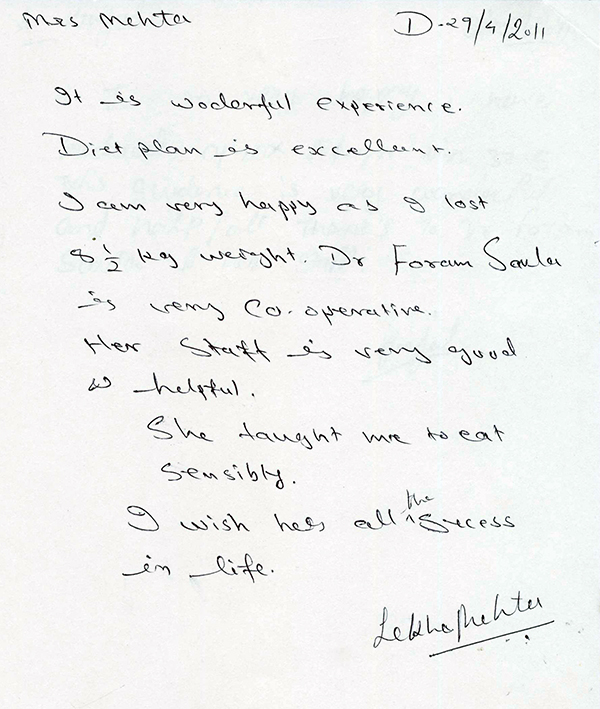 Mrs Mehta
D-29/4/2011
It is woderful experience.
Diet plan is excellent.
I am very happy as I lost
8 1/2 kg weight. Dr Foram Savla
is very Co-operative.
Her Staff is very good
& helpful.
She taught me to eat
sensibly.
I wish her all the Success
in life.
Lekha Mehta